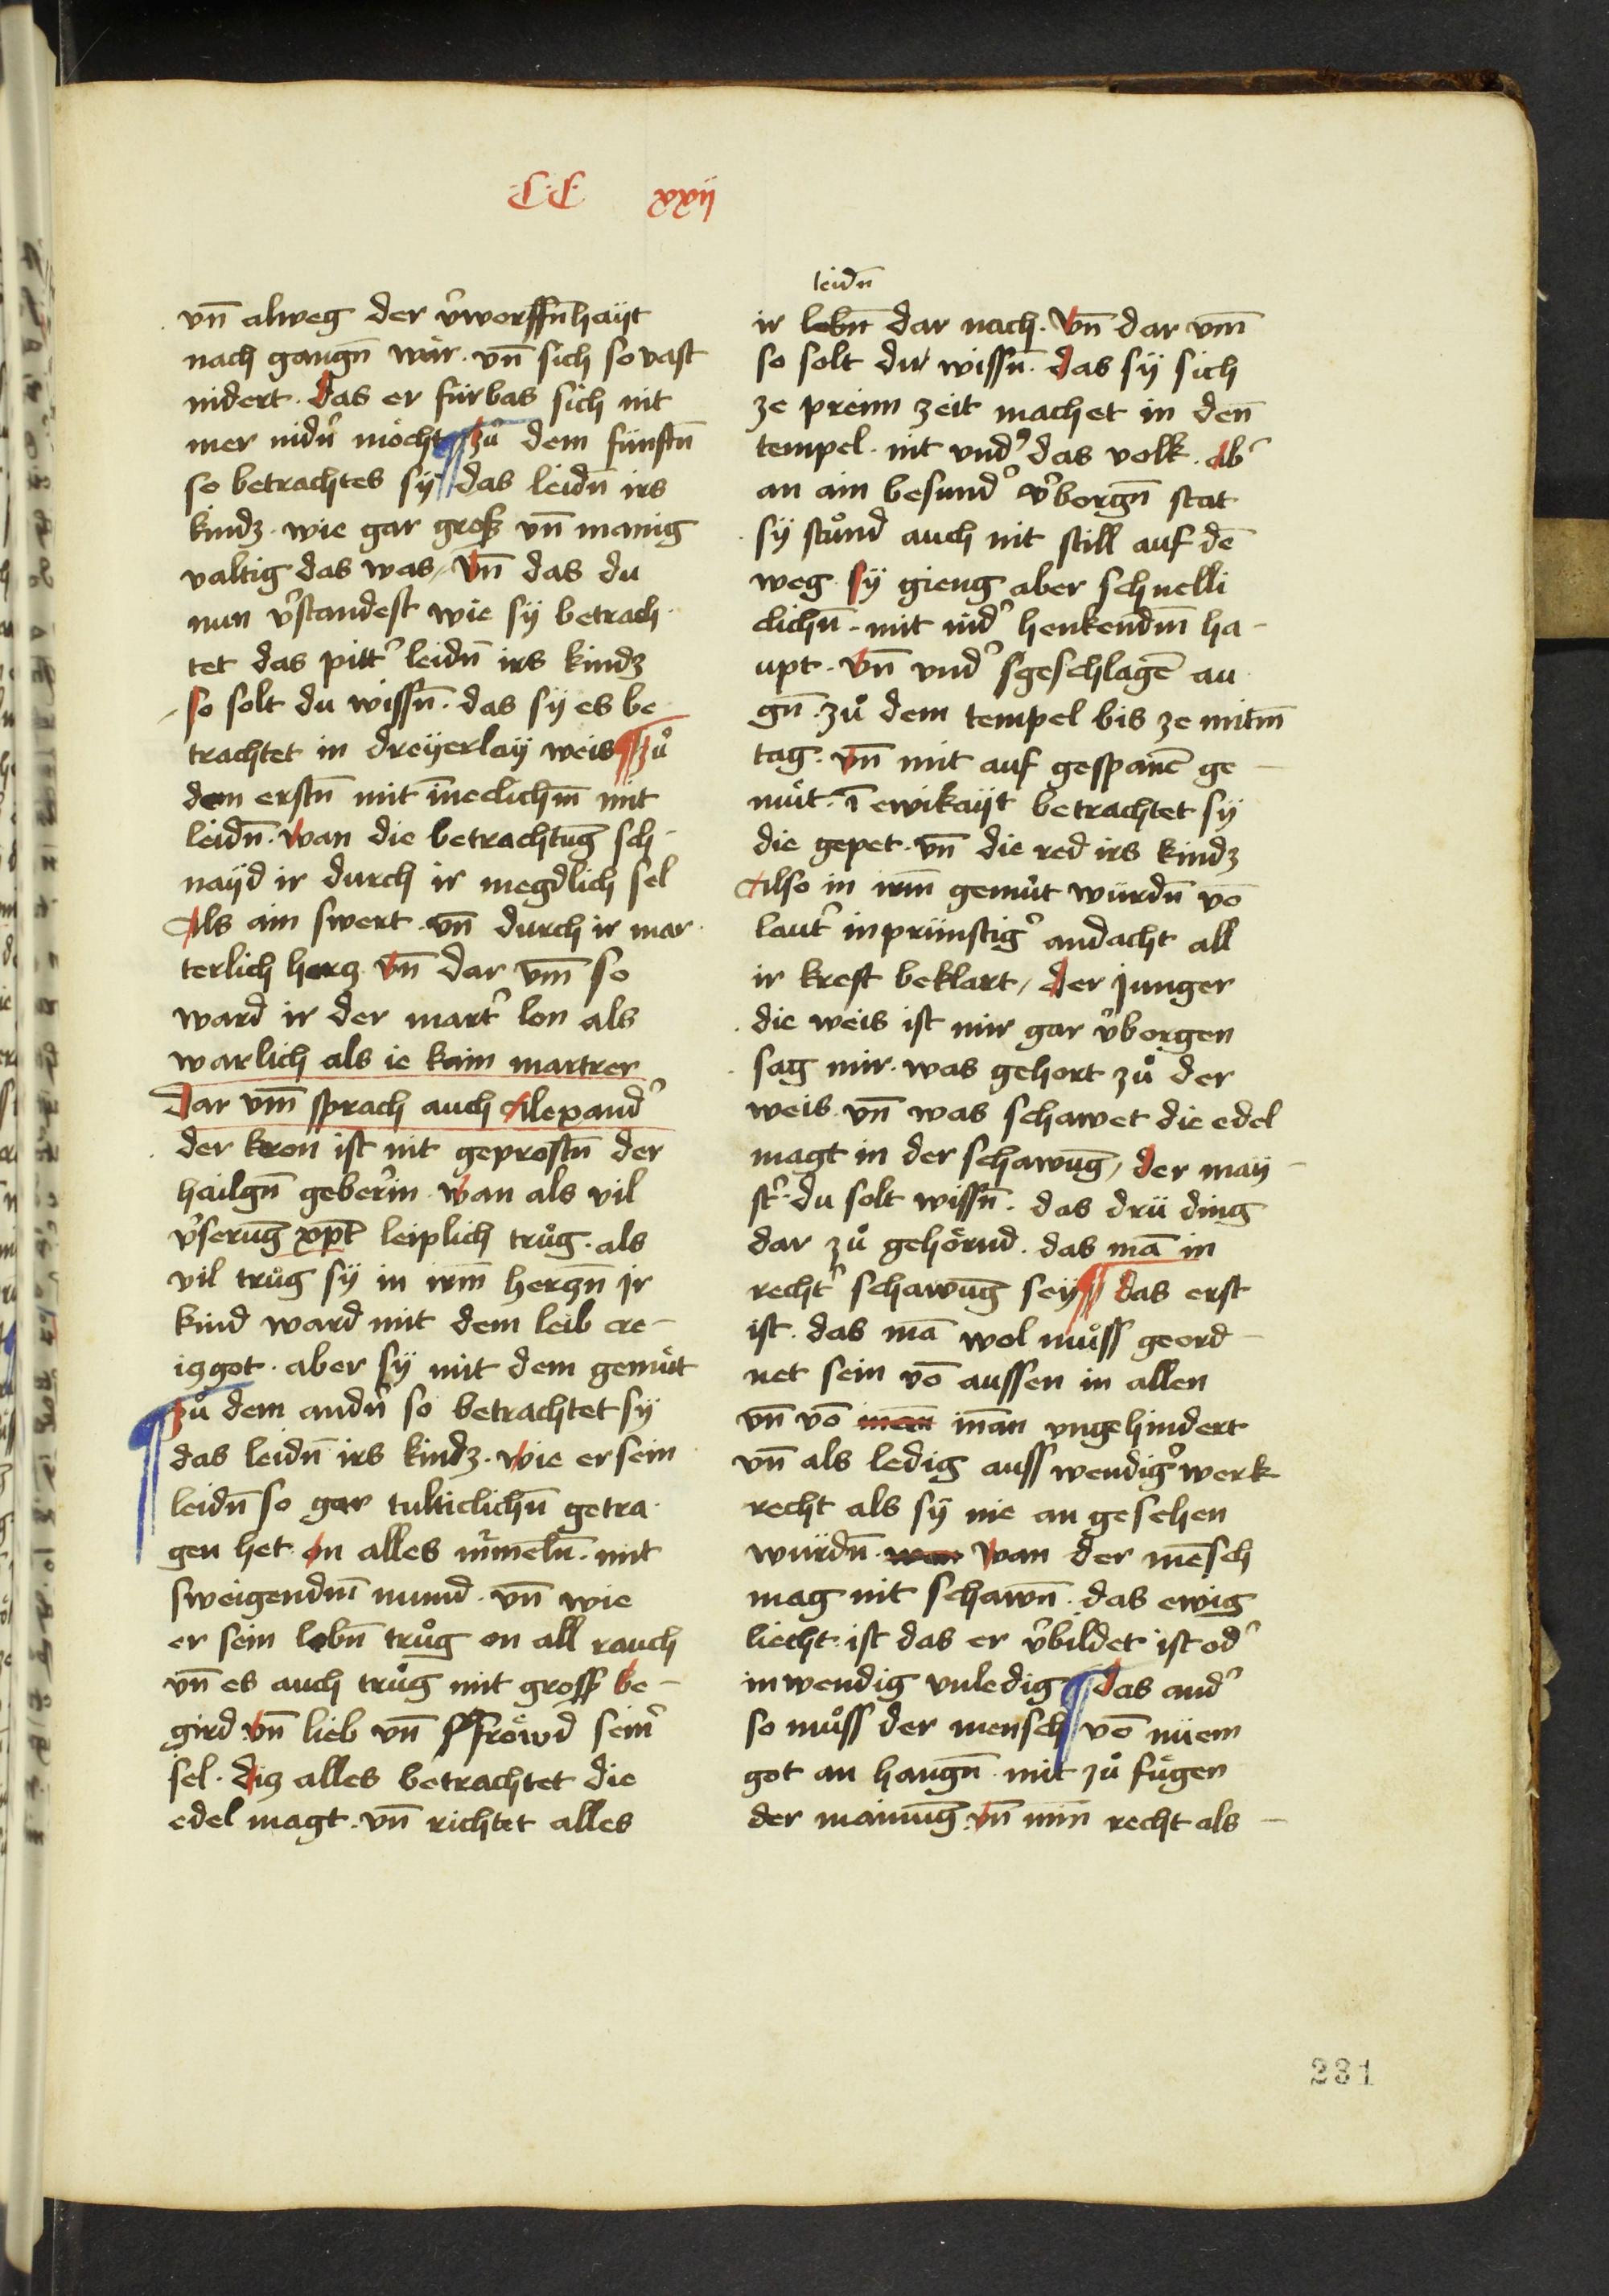 ·C·C· xxij
vn̄ alweg der v̉worffn̄hayt
nach gangn̄ wär · vn̄ sich so vast
nidert · das er fürbas sich nit
mer nidn̉ möcht zů dem fünftn̄
so betrachtes sÿ das leidn̄ irs
kindz · wie gar groß vn̄ manig
valtig das was / Vn̄ das du
nun v̉standest wie sÿ betrach
tet das pitt̉ leidn̄ irs kindz
so solt du wissn̄ · das sÿ es be
trachtet in dreÿerlaÿ weis zů
dem erstn̄ mit īneclichm̄ mit
leidn̄ · wan die betrachtūg sch-
naÿd ir durch ir megdlich sel
Als ain swert · vn̄ durch ir mar
terlich herz · vn̄ dar vm̄ so
ward ir der mart̉ lon als
warlich als ie kain martrer
Dar vm̄ sprach auch Alexand̉
der kron ist nit geprostn̄ der
hailgn̄ geber̉in · wan als vil
v̉serūg xp̄t leiplich trůg · als
vil trůg sÿ in irm̄ herzn̄ Jr
kind ward mit dem leib cre-
izgot · aber sÿ mit dem gemüt
zů dem andn̉ so betrachtet sÿ
das leidn̄ irs kindz · wie er sein
leidn̄ so gar tulticlichn̄ getra
gen het · on alles mu̇rmeln̄ · mit
sweigendm̄ mund · vn̄ wie
er sein lebn̄ trůg on all rauch
vn̄ es auch trůg mit gross be-
gird vn̄ lieb vn̄ ffröwd sein̉
sel · diz alles betrachtet die
edel magt · vn̄ richtet alles
leidn̄
ir lebn̄ dar nach · Vn̄ dar vm̄
so solt du wissn̄ · das sÿ sich
ze preim zeit machet in den̄
tempel · nit vnd̉ das volk · ab̉
an ain besund̉ v̉borgn̄ stat
sÿ stůnd auch nit still auf dē
weg · sÿ gieng aber schnelli
clichn̄ · mit nid̉ henkendm̄ ha-
upt · vn̄ vnd̉ sgeschlagē au
gn̄ · zů dem tempel bis ze mitm̄
tag · vn̄ mit auf gespanē ge-
müt · ī ewikaÿt betrachtet sÿ
die gepet · vn̄ die red irs kindz
Also in irm̄ gemüt würdn̄ vō
laut̉ inprünstig̉ andacht all
ir kreft beklärt / der Junger
die weis ist mir gar v̉borgen
sag mir · was gehort zů der
weis · vn̄ was schawet die edel
magt in der schawūg / der maÿ-
st̉ · du solt wissn̄ · das drü ding
dar zů gehörnd · das mā in
recht̉ schawūg seÿ das erst
ist · das mā wol můss geord-
net sein vō aussen in allen
vn̄ vō inēn īnan vngehindert
vn̄ als ledig auss wendig̉ werk
recht als sÿ nie an gesehen
würdn̄ · wan wan der mēsch
mag nit schawn̄ · das ewig
liecht · ist das er v̉bildet ist od̉
inwendig vnledig das and̉
so můss der mensch vō nüem
got an hangn̄ · mit zů fügen
der mainūg · vn̄ min̄ recht als -
231